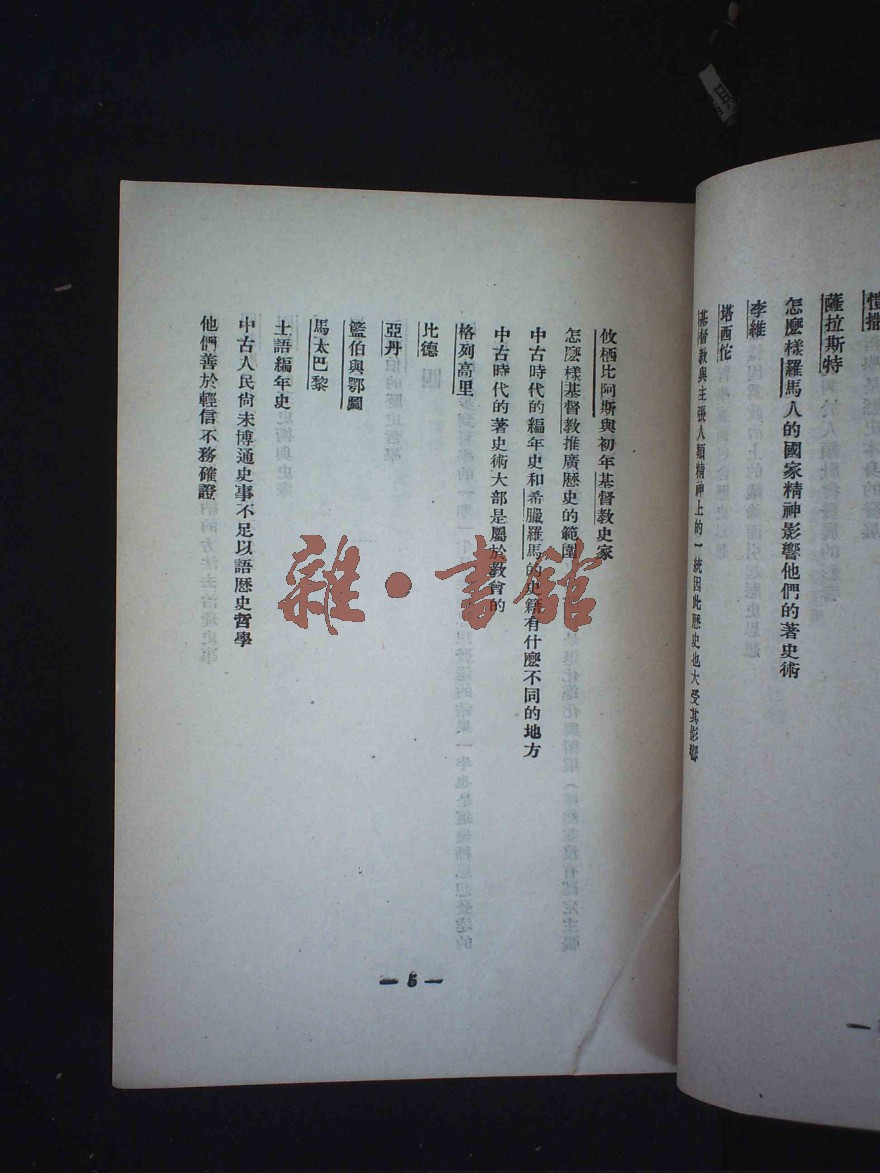 薩拉斯特
怎麼樣羅馬人的國家精神影響他們的著史術
李維
塔西佗
基督教與主張人類精神上的一統因此歷史也大受其影響
攸栖比阿斯與初年基督教史家
怎麼樣基督教推廣歷史的範圍
中古時代的編年史和希臘羅馬的史籍有什麼不同的地方
中古時代的著史術大部是屬於教會的
格列高里
比德
亞丹
籃伯與鄂圖
馬太巴黎
土語編年史
中古人民尚未博通史事不足以語歷史哲學
他們善於輕信不務確證
— 5 —
雜·書館